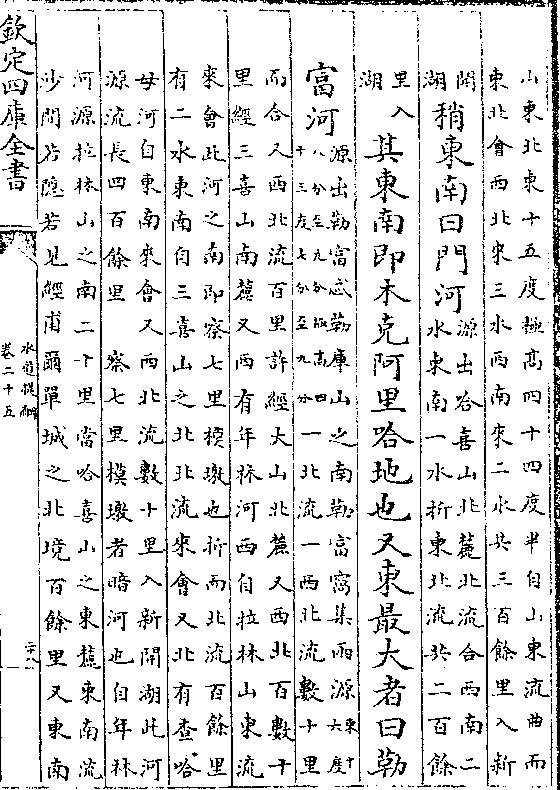 山東北東十五度極高四十四度半自山東流曲而
東北會西北來三水西南來二水共三百餘里入新
開湖稍東南曰門河源出哈喜山北麓北流合西南二
水東南一水折東北流共二百餘
里入湖其東南即木克阿里哈地也又東最大者曰勒
富河源出勒富忒勒庫山之南勒富窩集兩源東十六度
八分至九分極高四十三度七分至九分一北流一西北流數十里
而合又西北流百里許經大山北麓又西北百數十
里經三喜山南麓又西有年秝河西自拉秝山東流
來會此河之南即察七里模墩也折而北流百餘里
有二水東南自三喜山之北北流來會又北有查哈
毋河自東南來會又西北流數十里入新開湖此河
源流長四百餘里 察七里模墩者暗河也自年秝
河源拉秝山之南二十里當哈喜山之東麓東南流
沙間若隱若見經甫爾單城之北境百餘里又東南
欽定四庫全書
水道提綱
卷二十五